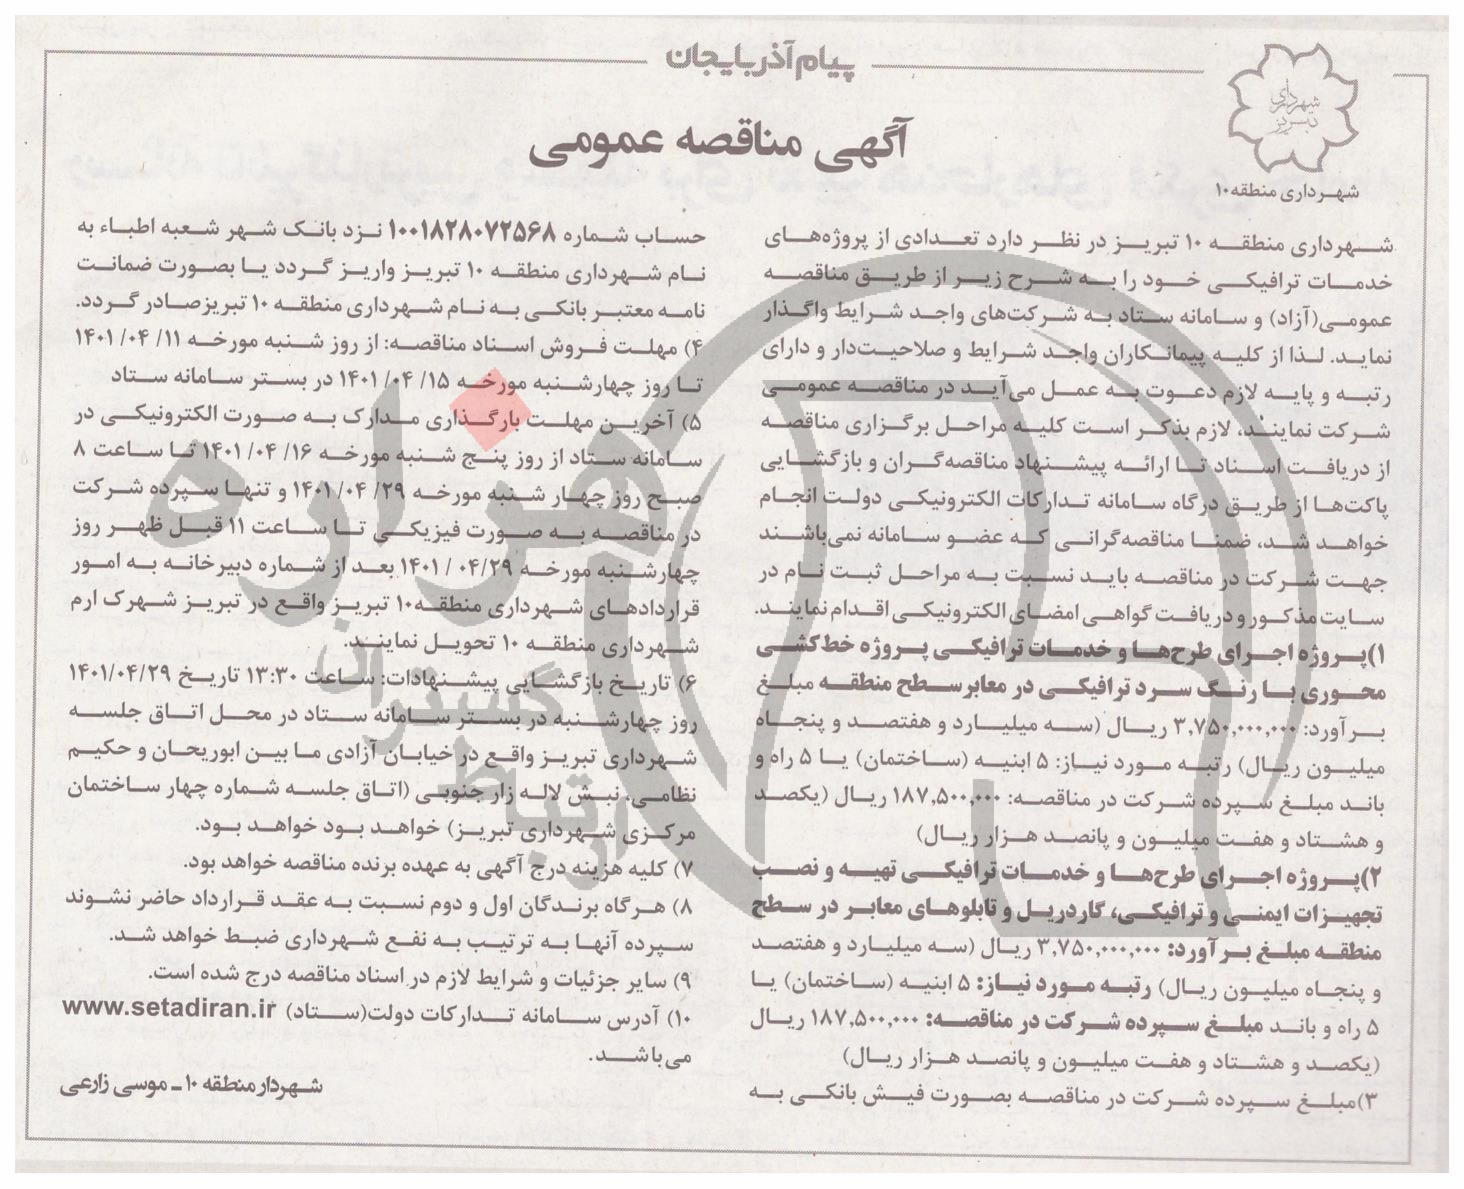 پیام آذربایجان
شهرداری تبریز
شهرداری منطقه ۱۰
آگهی مناقصه عمومی
شهرداری منطقه ۱۰ تبریز در نظر دارد تعدادی از پروژه‌های
خدمات ترافیکی خود را به شرح زیر از طریق مناقصه
عمومی(آزاد) و سامانه ستاد به شرکت‌های واجد شرایط واگذار
نماید. لذا از کلیه پیمانکاران واجد شرایط و صلاحیت‌دار و دارای
رتبه و پایه لازم دعوت به عمل می‌آید در مناقصه عمومی
شرکت نمایند، لازم بذکر است کلیه مراحل برگزاری مناقصه
از دریافت اسناد تا ارائه پیشنهاد مناقصه‌گران و بازگشایی
پاکت‌ها از طریق درگاه سامانه تدارکات الکترونیکی دولت انجام
خواهد شد، ضمنا مناقصه‌گرانی که عضو سامانه نمی‌باشند
جهت شرکت در مناقصه باید نسبت به مراحل ثبت نام در
سایت مذکور و دریافت گواهی امضای الکترونیکی اقدام نمایند.
۱)پروژه اجرای طرح‌ها و خدمات ترافیکی پروژه خط‌کشی
محوری با رنگ سرد ترافیکی در معابر سطح منطقه مبلغ
برآورد: ۳,۷۵۰,۰۰۰,۰۰۰ ریال (سه میلیارد و هفتصد و پنجاه
میلیون ریال) رتبه مورد نیاز: ۵ ابنیه (ساختمان) یا ۵ راه و
باند مبلغ سپرده شرکت در مناقصه: ۱۸۷,۵۰۰,۰۰۰ ریال (یکصد
و هشتاد و هفت میلیون و پانصد هزار ریال)
۲)پروژه اجرای طرح‌ها و خدمات ترافیکی تهیه و نصب
تجهیزات ایمنی و ترافیکی، گاردریل و تابلوهای معابر در سطح
منطقه مبلغ برآورد: ۳,۷۵۰,۰۰۰,۰۰۰ ریال (سه میلیارد و هفتصد
و پنجاه میلیون ریال) رتبه مورد نیاز: ۵ ابنیه (ساختمان) یا
۵ راه و باند مبلغ سپرده شرکت در مناقصه: ۱۸۷,۵۰۰,۰۰۰ ریال
(یکصد و هشتاد و هفت میلیون و پانصد هزار ریال)
۳)مبلغ سپرده شرکت در مناقصه بصورت فیش بانکی به
حساب شماره ۱۰۰۱۸۲۸۰۷۲۵۶۸ نزد بانک شهر شعبه اطباء به
نام شهرداری منطقه ۱۰ تبریز واریز گردد یا بصورت ضمانت
نامه معتبر بانکی به نام شهرداری منطقه ۱۰ تبریزصادر گردد.
۴) مهلت فروش اسناد مناقصه: از روز شنبه مورخه ۱۱/ ۰۴/ ۱۴۰۱
تا روز چهارشنبه مورخه ۱۵/ ۰۴/ ۱۴۰۱ در بستر سامانه ستاد
۵) آخرین مهلت بارگذاری مدارک به صورت الکترونیکی در
سامانه ستاد از روز پنج شنبه مورخه ۱۶/ ۰۴/ ۱۴۰۱ تا ساعت ۸
صبح روز چهار شنبه مورخه ۲۹/ ۰۴/ ۱۴۰۱ و تنها سپرده شرکت
در مناقصه به صورت فیزیکی تا ساعت ۱۱ قبل ظهر روز
چهارشنبه مورخه ۰۴/۲۹ / ۱۴۰۱ بعد از شماره دبیرخانه به امور
قراردادهای شهرداری منطقه۱۰ تبریز واقع در تبریز شهرک ارم
شهرداری منطقه ۱۰ تحویل نمایند.
۶) تاریخ بازگشایی پیشنهادات: ساعت ۱۳:۳۰ تاریخ ۱۴۰۱/۰۴/۲۹
روز چهارشنبه در بستر سامانه ستاد در محل اتاق جلسه
شهرداری تبریز واقع در خیابان آزادی ما بین ابوریحان و حکیم
نظامی، نبش لاله زار جنوبی (اتاق جلسه شماره چهار ساختمان
مرکزی شهرداری تبریز) خواهد بود خواهد بود.
۷) کلیه هزینه درج آگهی به عهده برنده مناقصه خواهد بود.
۸) هرگاه برندگان اول و دوم نسبت به عقد قرارداد حاضر نشوند
سپرده آنها به ترتیب به نفع شهرداری ضبط خواهد شد.
۹) سایر جزئیات و شرایط لازم در اسناد مناقصه درج شده است.
۱۰) آدرس سامانه تدارکات دولت(ستاد) www.setadiran.ir
می‌باشد.
شهردار منطقه ۱۰ ـ موسی زارعی
هزاره
گستران
ارتباط